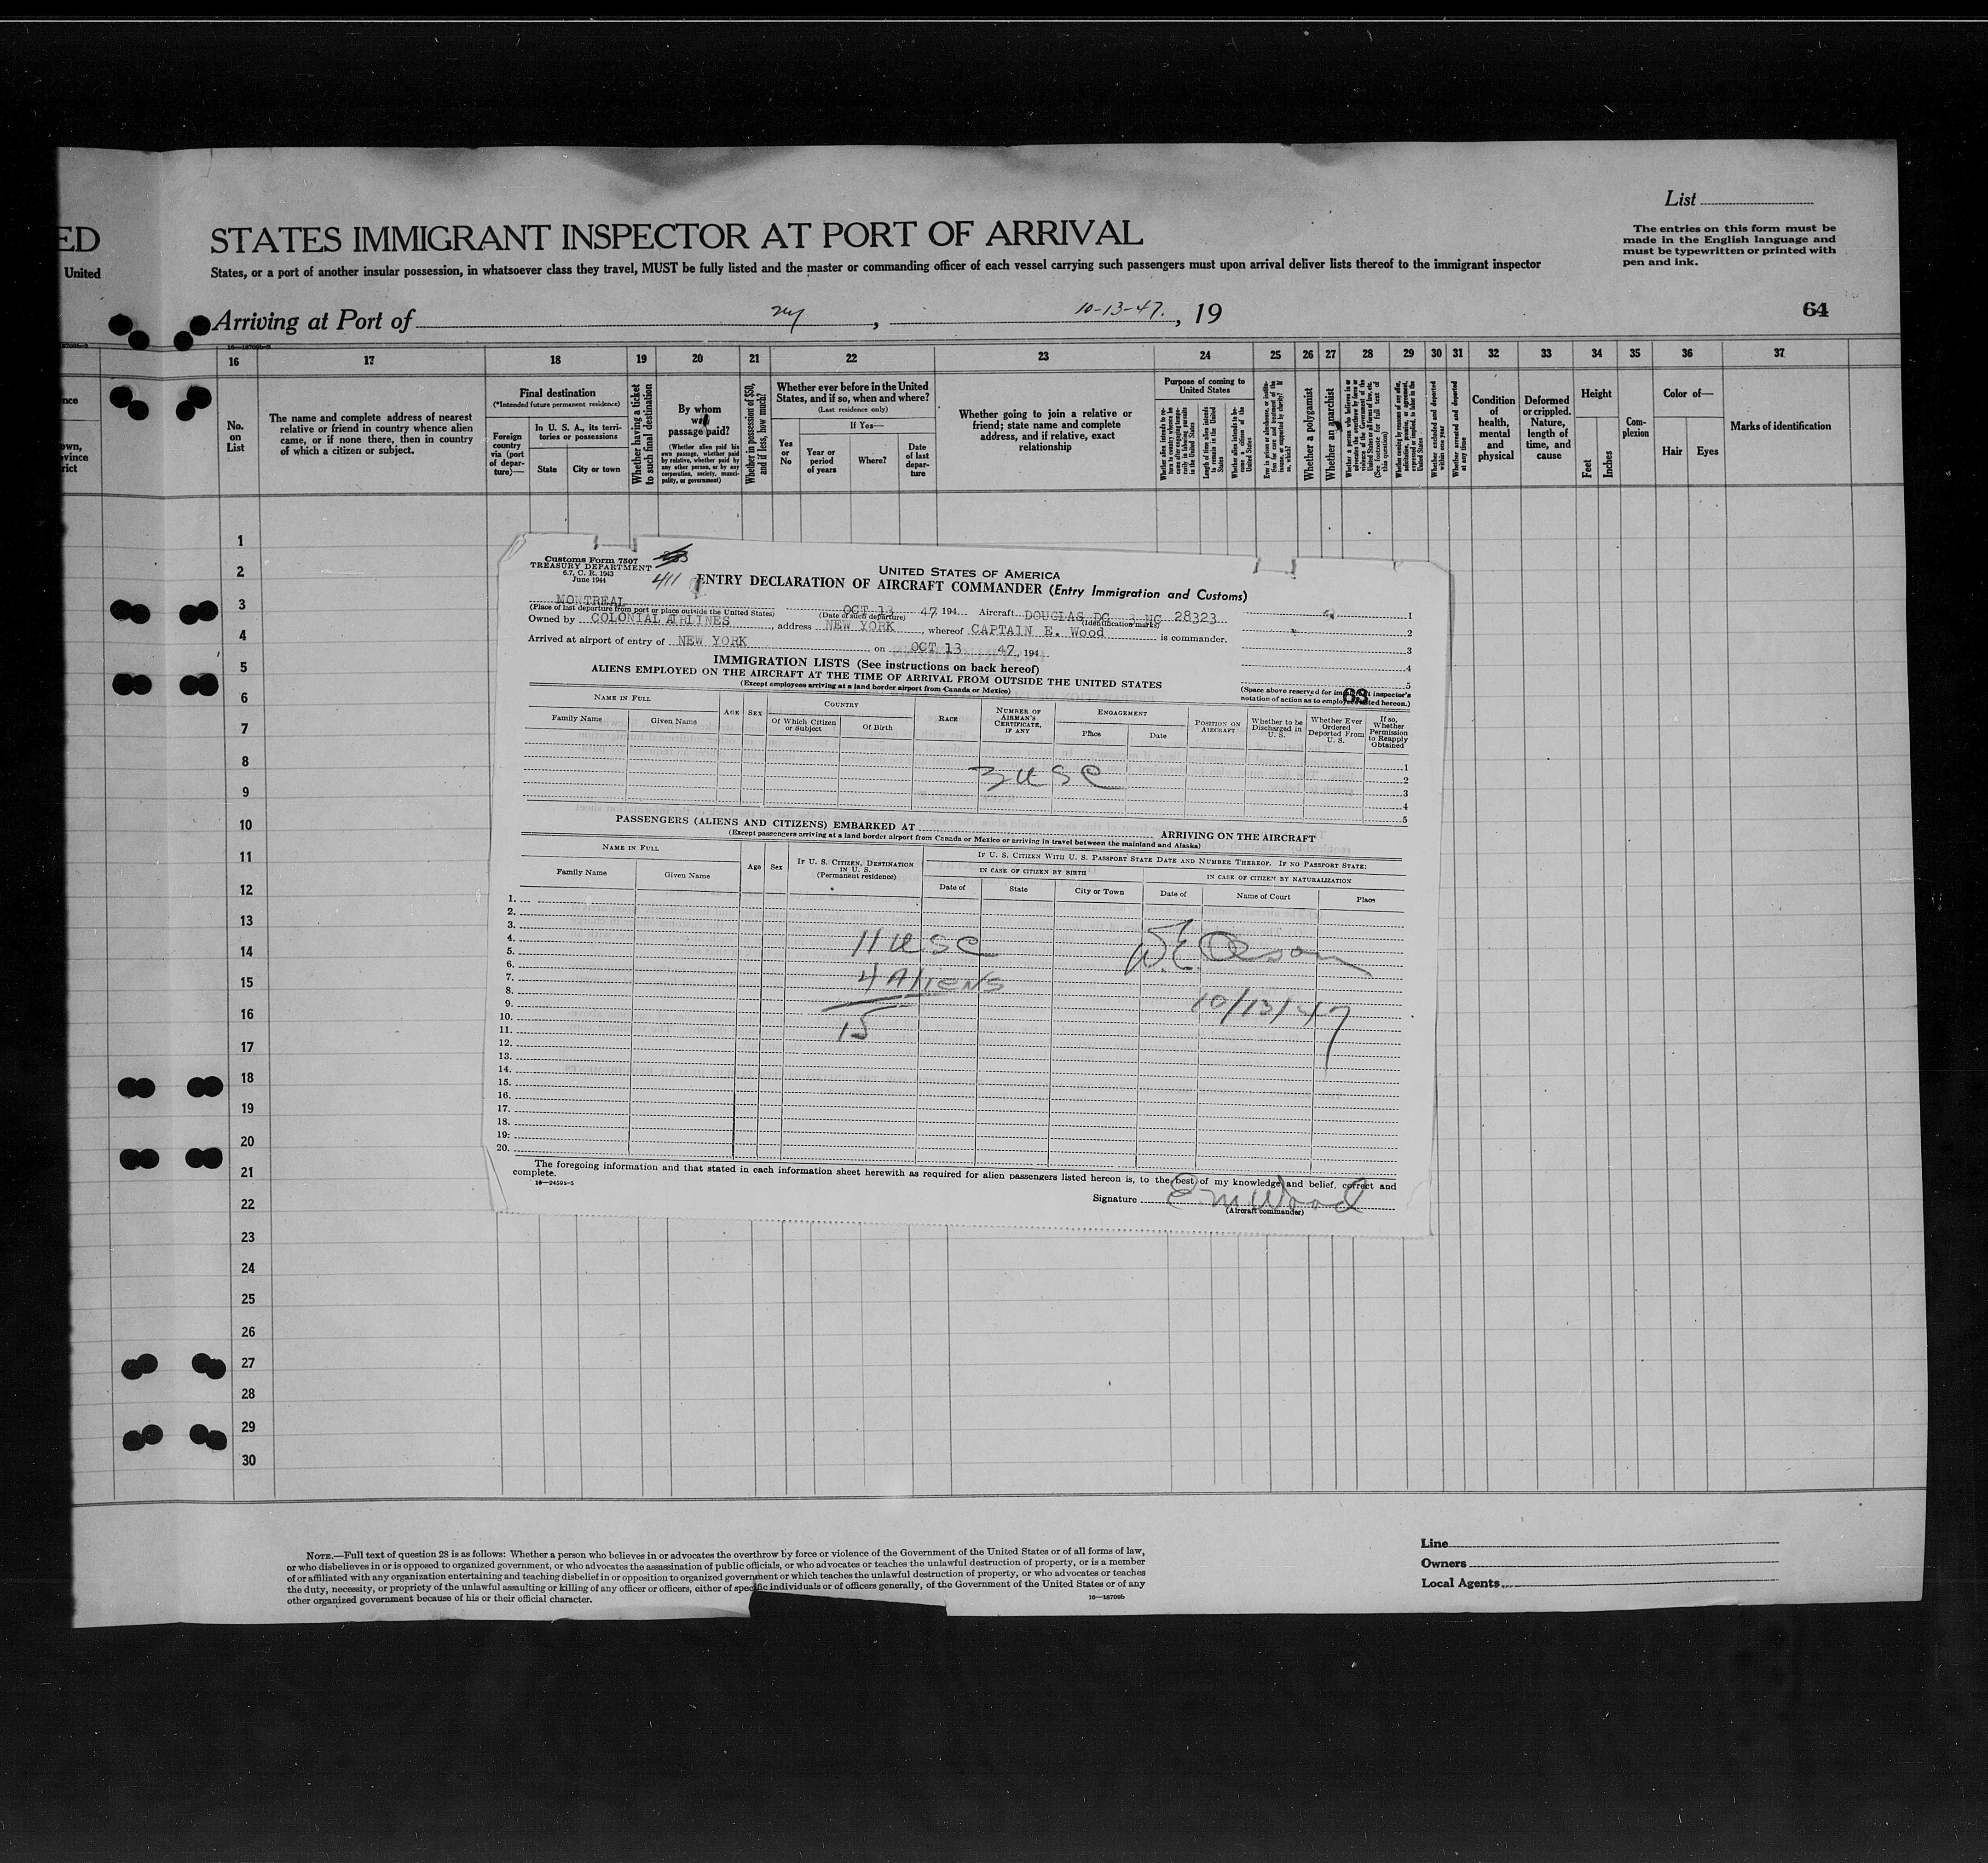 List
ED
STATES IMMIGRANT INSPECTOR AT PORT OF ARRIVAL
The entries on this form must be
made in the English language and
must be typewritten or printed with
pen and ink.
United
States, or a port of another insular possession, in whatsoever class they travel, MUST be fully listed and the master or commanding officer of each vessel carrying such passengers must upon arrival deliver lists thereof to the immigrant inspector
Arriving at Port of NY, 10-13-47., 19
64
16 17 18 19 20 21 22 23 24 25 26 27 28 29 30 31 32 33 34 35 36 37
No.
on
List
The name and complete address of nearest
relative or friend in country whence alien
came, or if none there, then in country
of which a citizen or subject.
Final destination
(*Intended future permanent residence)
Foreign
country
via (port
of depar-
ture)—
In U. S. A., its terri-
tories or possessions
State
City or town
Whether having a ticket
to such final destination
By whom
was
passage paid?
(Whether alien paid his
own passage, whether paid
by relative, whether paid by
any other person, or by any
corporation, society, munici-
pality, or government)
Whether in possession of $50,
and if less, how much?
Whether ever before in the United
States, and if so, when and where?
(Last residence only)
Yes
or
No
If Yes—
Year or
period
of years
Where?
Date
of last
depar-
ture
Whether going to join a relative or
friend; state name and complete
address, and if relative, exact
relationship
Purpose of coming to
United States
Length of time alien intends
to remain in the United
States
Whether a polygamist
Whether an anarchist
Whether excluded and deported
within one year
Whether arrested and deported
at any time
Condition
of
health,
mental
and
physical
Deformed
or crippled.
Nature,
length of
time, and
cause
Height
Feet
Inches
Com-
plexion
Color of—
Hair
Eyes
Marks of identification
1
2
3
4
5
6
7
8
9
10
11
12
13
14
15
16
17
18
19
20
21
22
23
24
25
26
27
28
29
30
Customs Form 7507
TREASURY DEPARTMENT
6.7, C. R. 1943
June 1944
411
UNITED STATES OF AMERICA
ENTRY DECLARATION OF AIRCRAFT COMMANDER (Entry Immigration and Customs)
MONTREAL OCT 13 47 194 Aircraft DOUGLAS DC 3 NC 28323
(Place of last departure from port or place outside the United States) (Date of such departure) (Identification marks)
Owned by COLONIAL AIRLINES, address NEW YORK, whereof CAPTAIN E. Wood is commander.
Arrived at airport of entry of NEW YORK on OCT 13 47, 194
1
2
3
4
5
IMMIGRATION LISTS (See instructions on back hereof)
ALIENS EMPLOYED ON THE AIRCRAFT AT THE TIME OF ARRIVAL FROM OUTSIDE THE UNITED STATES
(Except employees arriving at a land border airport from Canada or Mexico)
(Space above reserved for immigrant inspector's
notation of action as to employees listed hereon.)
63
NAME IN FULL
Family Name
Given Name
AGE
SEX
COUNTRY
Of Which Citizen
or Subject
Of Birth
RACE
NUMBER OF
AIRMAN'S
CERTIFICATE,
IF ANY
ENGAGEMENT
Place
Date
POSITION ON
AIRCRAFT
Whether to be
Discharged in
U. S.
Whether Ever
Ordered
Deported From
U. S.
If so,
Whether
Permission
to Reapply
Obtained
1
2
3
4
5
3 USC
PASSENGERS (ALIENS AND CITIZENS) EMBARKED AT ARRIVING ON THE AIRCRAFT
(Except passengers arriving at a land border airport from Canada or Mexico or arriving in travel between the mainland and Alaska)
NAME IN FULL
Family Name
Given Name
Age
Sex
IF U. S. CITIZEN, DESTINATION
IN U. S.
(Permanent residence)
IF U. S. CITIZEN WITH U. S. PASSPORT STATE DATE AND NUMBER THEREOF. IF NO PASSPORT STATE:
IN CASE OF CITIZEN BY BIRTH
IN CASE OF CITIZEN BY NATURALIZATION
Date of
State
City or Town
Date of
Name of Court
Place
1.
2.
3.
4.
5.
6.
7.
8.
9.
10.
11.
12.
13.
14.
15.
16.
17.
18.
19.
20.
11 USC
4 Aliens
15
W.E.
10/13/47
The foregoing information and that stated in each information sheet herewith as required for alien passengers listed hereon is, to the best of my knowledge and belief, correct and
complete.
16—24595-5
Signature E M Wood
(Aircraft commander)
NOTE.—Full text of question 28 is as follows: Whether a person who believes in or advocates the overthrow by force or violence of the Government of the United States or of all forms of law,
or who disbelieves in or is opposed to organized government, or who advocates the assassination of public officials, or who advocates or teaches the unlawful destruction of property, or is a member
of or affiliated with any organization entertaining and teaching disbelief in or opposition to organized government or which teaches the unlawful destruction of property, or who advocates or teaches
the duty, necessity, or propriety of the unlawful assaulting or killing of any officer or officers, either of specific individuals or of officers generally, of the Government of the United States or of any
other organized government because of his or their official character.
16—18709b
Line
Owners
Local Agents